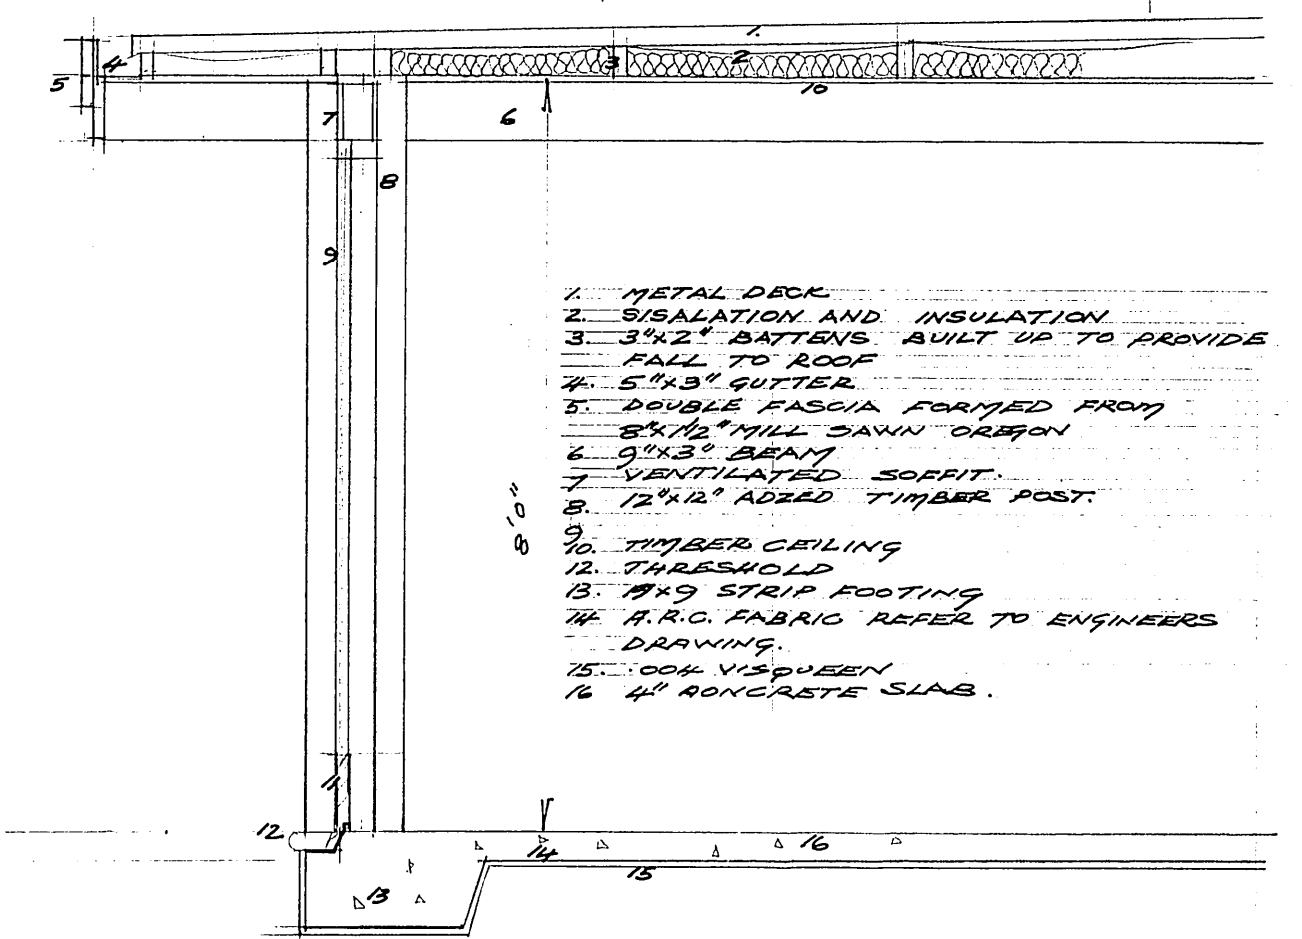 1.
4
3
2
5
10
7
6
8
9
1. METAL DECK
2. SISALATION AND INSULATION
3. 3"x2" BATTENS BUILT UP TO PROVIDE
FALL TO ROOF
4. 5"x3" GUTTER
5. DOUBLE FASCIA FORMED FROM
8"x1½" MILL SAWN OREGON
6 9"x3" BEAM
7 VENTILATED SOFFIT.
8. 12"x12" ADZED TIMBER POST.
9
10. TIMBER CEILING
12. THRESHOLD
13. x9 STRIP FOOTING
14 A.R.C. FABRIC REFER TO ENGINEERS
DRAWING.
15. .004 VISQUEEN
16 4" AONCRETE SLAB.
8'0"
11
12
14
16
15
13